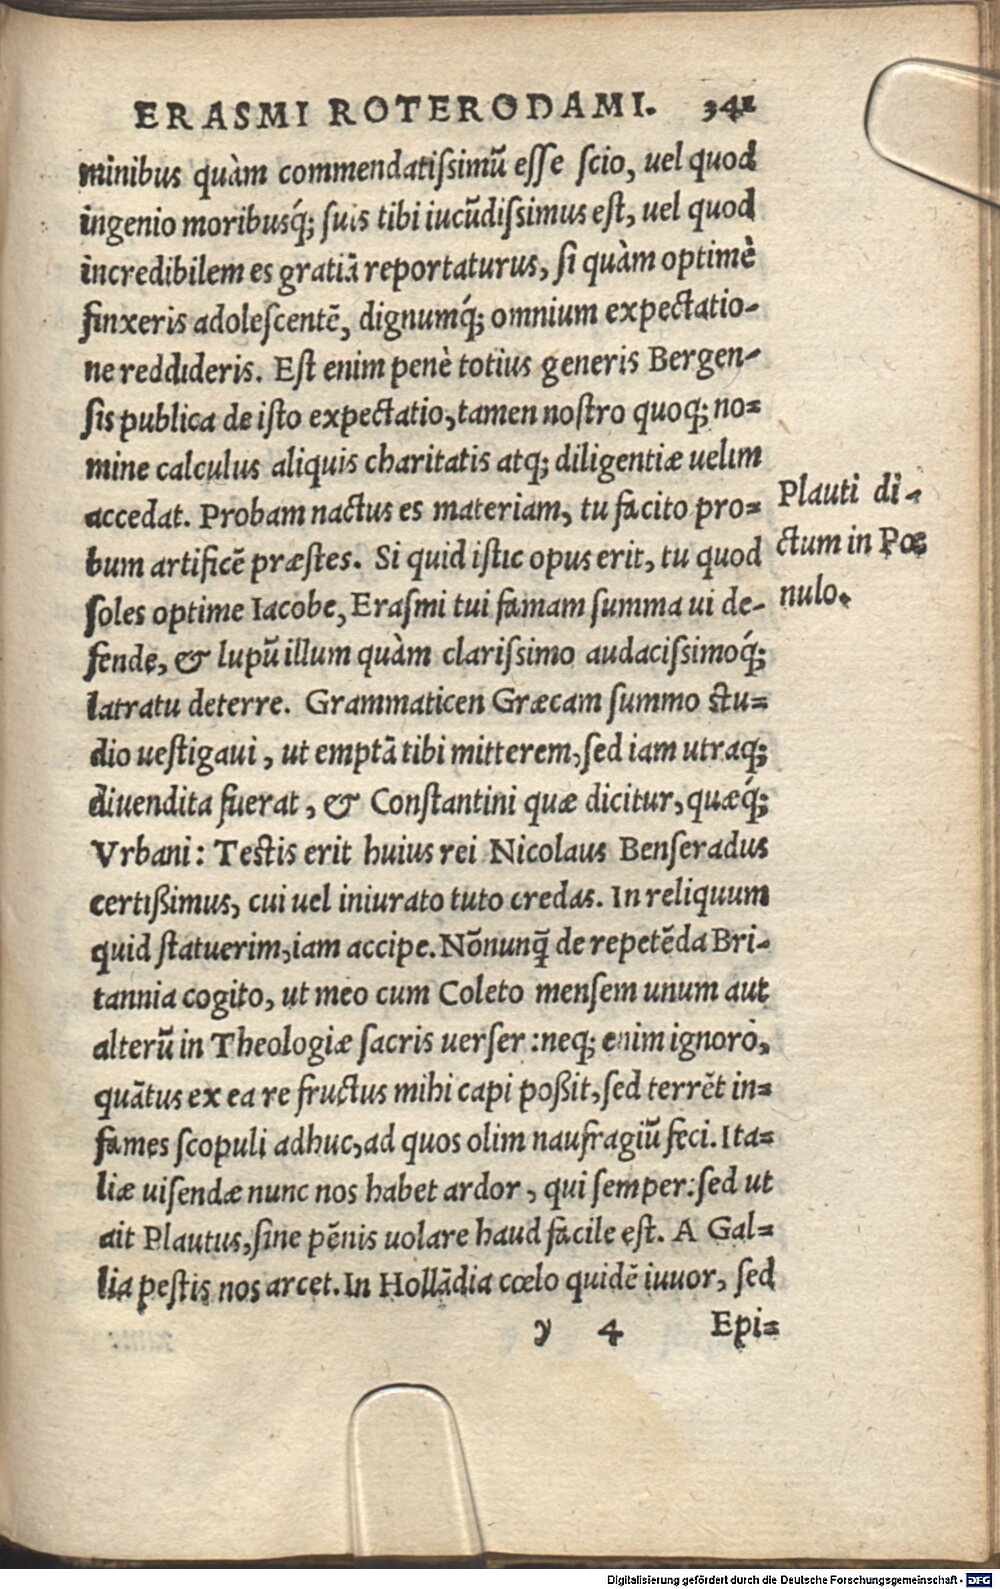 ERASMI ROTERODAMI. 341
minibus quàm commendatiſsimũ eſſe ſcio, uel quod
ingenio moribusq́; ſuis tibi iucũdiſsimus eſt, uel quod
incredibilem es gratiã reportaturus, ſi quàm optimè
finxeris adoleſcentẽ, dignumq́; omnium expectatio-
ne reddideris. Eſt enim penè totius generis Bergen-
ſis publica de iſto expectatio, tamen noſtro quoq; no=
mine calculus aliquis charitatis atq; diligentiæ uelim
accedat. Probam nactus es materiam, tu facito pro=
bum artificẽ præſtes. Si quid iſtic opus erit, tu quod
ſoles optime Iacobe, Eraſmi tui famam ſumma ui de-
fende, & lupũ illum quàm clariſsimo audaciſsimoq́;
latratu deterre. Grammaticen Græcam ſummo ſtu=
dio ueſtigaui, ut emptã tibi mitterem, ſed iam utraq;
diuendita fuerat, & Conſtantini quæ dicitur, quæq́;
Vrbani: Teſtis erit huius rei Nicolaus Benſeradus
certißimus, cui uel iniurato tuto credas. In reliquum
quid ſtatuerim, iam accipe. Nõnunq̃ de repetẽda Bri-
tannia cogito, ut meo cum Coleto menſem unum aut
alterũ in Theologiæ ſacris uerſer: neq; enim ignoro,
quãtus ex ea re fructus mihi capi poßit, ſed terrẽt in=
fames ſcopuli adhuc, ad quos olim naufragiũ feci. Ita=
liæ uiſendæ nunc nos habet ardor, qui ſemper: ſed ut
ait Plautus, ſine pẽnis uolare haud facile eſt. A Gal=
lia peſtis nos arcet. In Hollãdia cœlo quidẽ iuuor, ſed
y 4 Epi=
Plauti di-
ctum in Pœ
nulo.
Digitalisierung gefördert durch die Deutsche Forschungsgemeinschaft - DFG